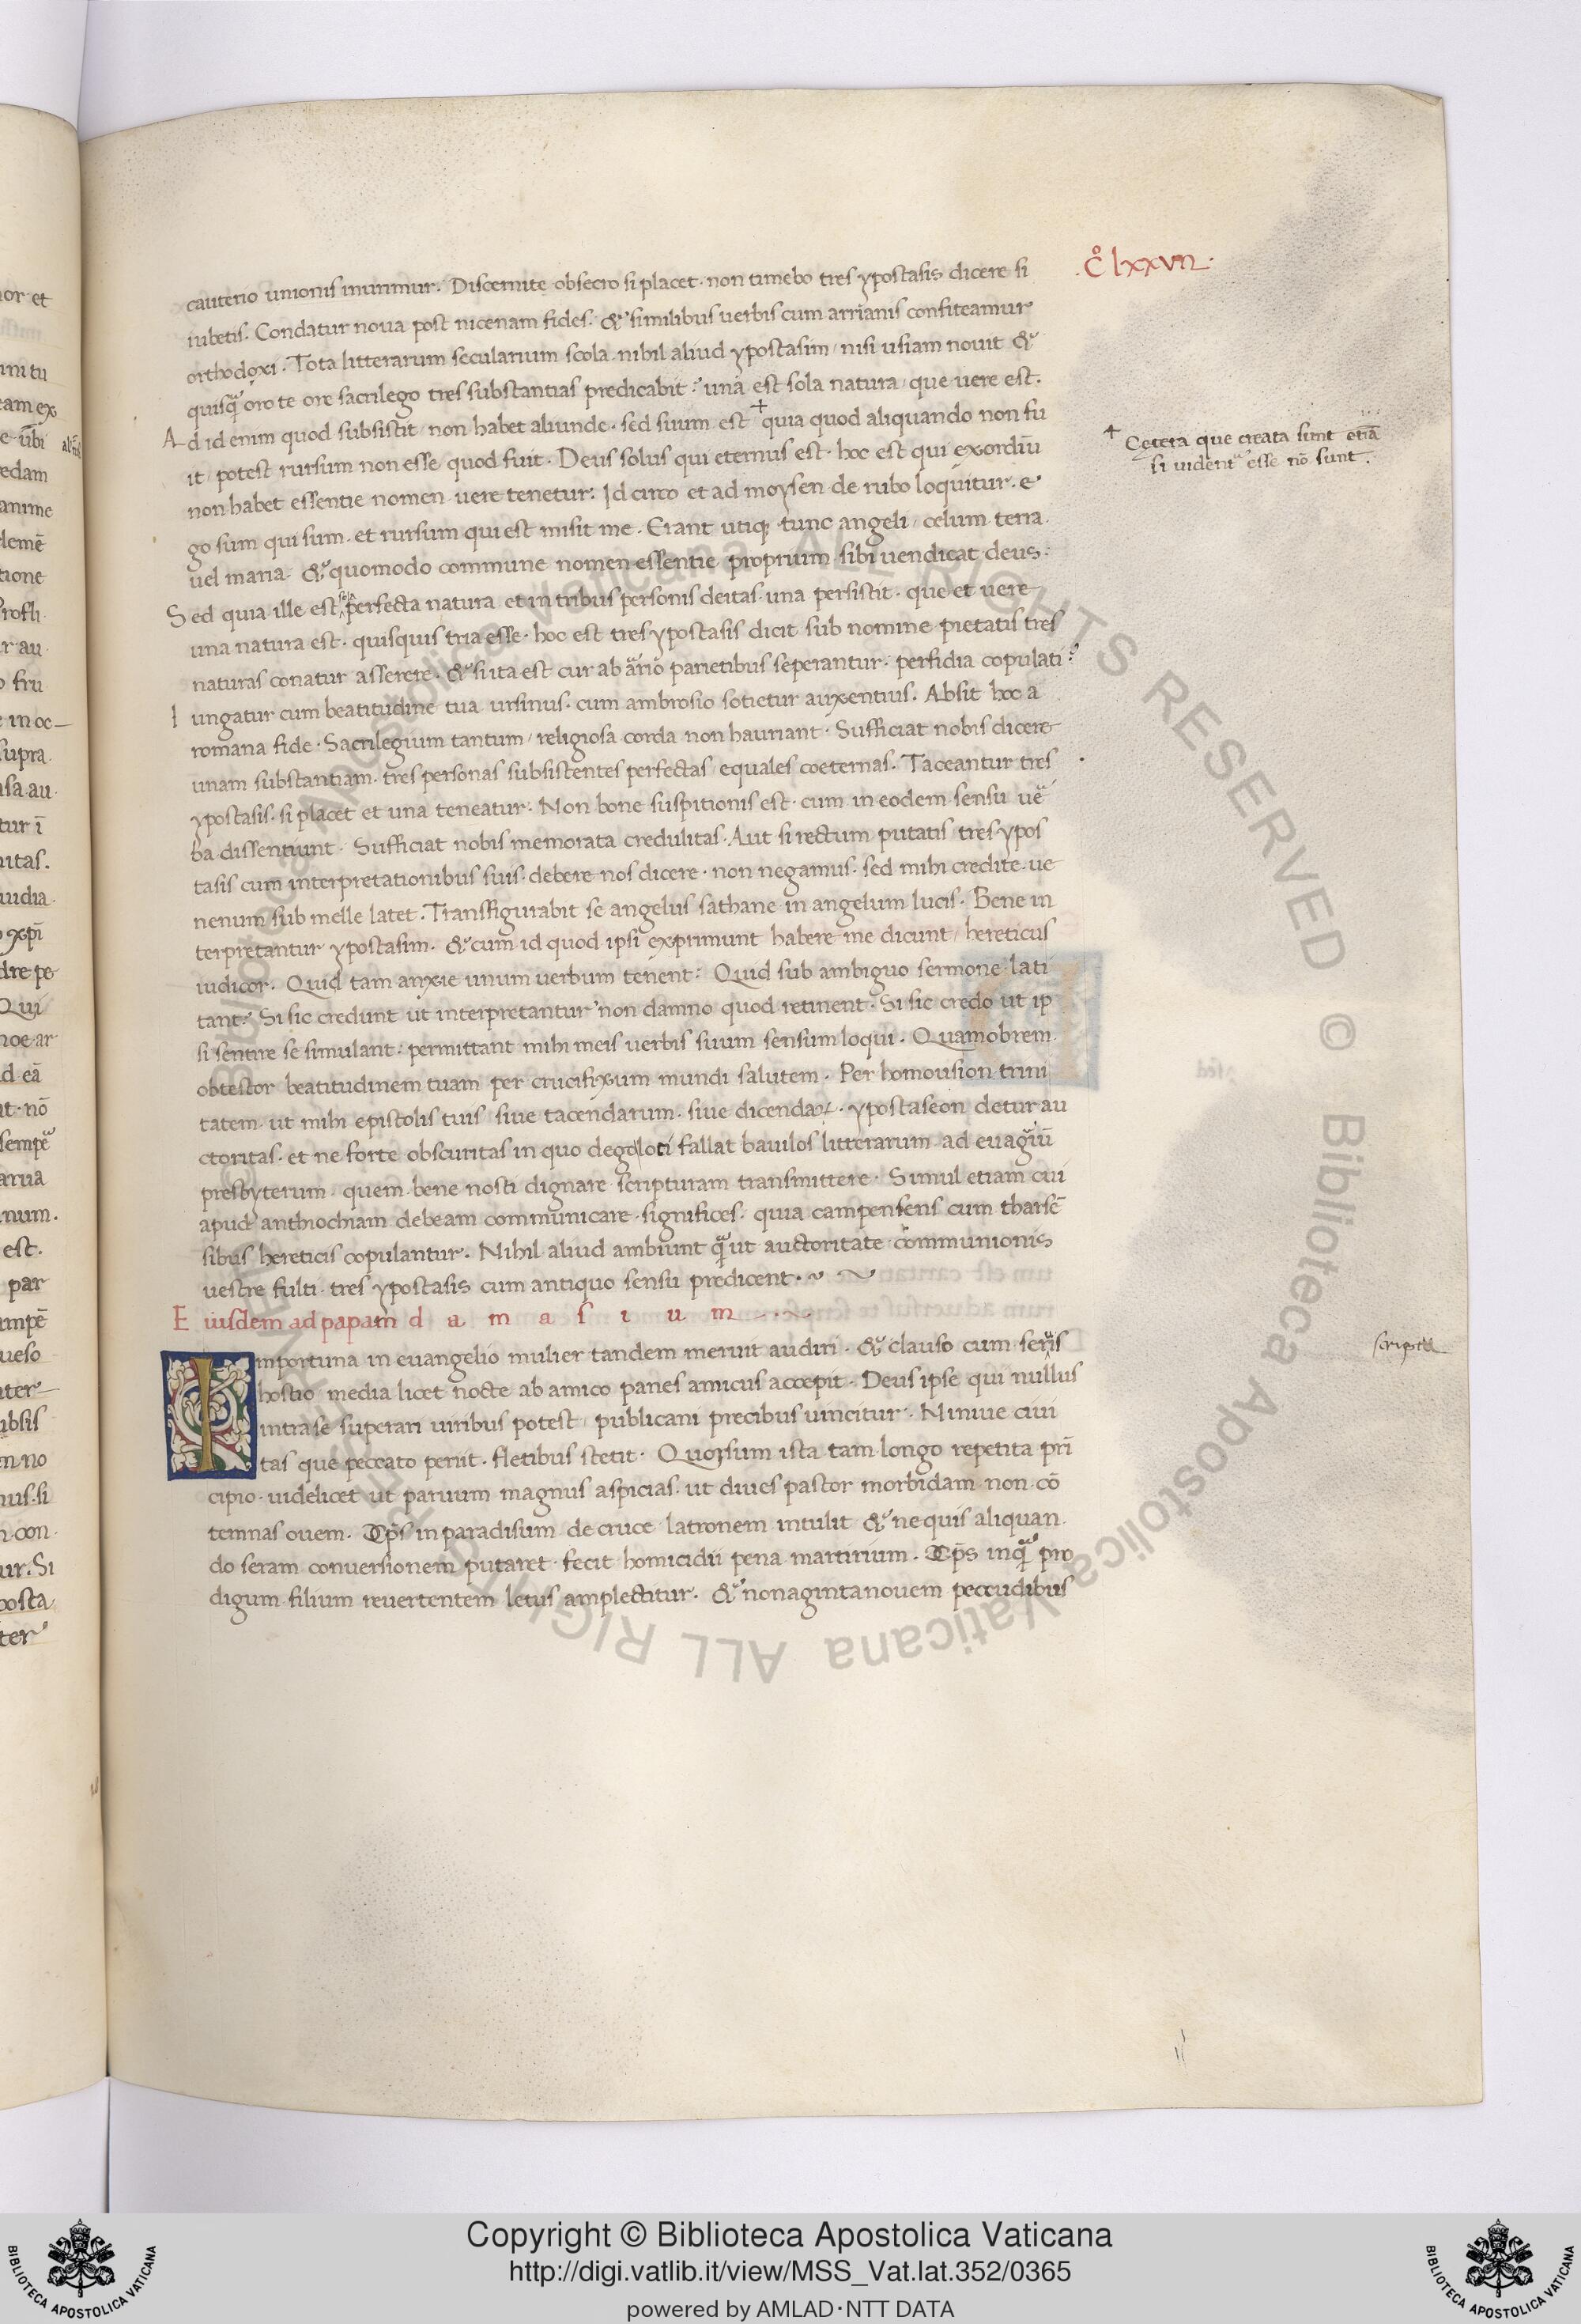 C̊ lxxvii.
cauterio unionis inurimur. Discernite obsecro si placet. non timebo tres ypostasis dicere si
iubetis. Condatur noua post nicenam fides. & similibus uerbis cum arrianis confiteamur
orthodoxi. Tota litterarum secularium scola nihil aliud ypostasim nisi usiam nouit &
quisq̃ oro te ore sacrilego tres substantias predicabit? una est sola natura que uere est.
Ad id enim quod subsistit non habet aliunde. sed suum est + quia quod aliquando non fu
it potest rursum non esse quod fuit. Deus solus qui eternus est. hoc est qui exordiū
non habet essentie nomen uere tenetur. Id circo et ad moysen de rubo loquitur. e
go sum qui sum. et rursum qui est misit me. Erant utiq; tunc angeli celum terra
uel maria. & quomodo commune nomen essentie proprium sibi uendicat deus.
Sed quia ille est sola perfecta natura et in tribus personis deitas una persistit. que et uere
una natura est. quisquis tria esse. hoc est tres ypostasis dicit sub nomine pietatis tres
naturas conatur asserere. & si ita est cur ab ario parietibus seperantur. perfidia copulati?
Iungatur cum beatitudine tua ursinus. cum ambrosio sotietur auxentius. Absit hoc a
romana fide. Sacrilegium tantum religiosa corda non hauriant. Sufficiat nobis dicere
unam substantiam. tres personas subsistentes perfectas equales coeternas. Taceantur tres
ypostasis. si placet et una teneatur. Non bone suspitionis est. cum in eodem sensu uer̃
ba dissentiunt. Sufficiat nobis memorata credulitas. Aut si rectum putatis tres ypos
tasis cum interpretationibus suis. debere nos dicere. non negamus. sed mihi credite. ue
nenum sub melle latet. Transfigurabit se angelus sathane in angelum lucis. Bene in
terpretantur ypostasim. & cum id quod ipsi exprimunt habere me dicunt hereticus
iudicor. Quid tam anxie unum uerbum tenent? Quid sub ambiguo sermone lati
tant? Si sic credunt ut interpretantur non damno quod retinent. Si sic credo ut ip
si sentire se simulant. permittant mihi meis uerbis suum sensum loqui. Quamobrem
obtestor beatitudinem tuam per crucifixum mundi salutem. Per homousion trini
tatem. ut mihi epistolis tuis siue tacendarum. siue dicendaꝝ. ypostaseon detur au
ctoritas. et ne forte obscuritas in quo degoloci fallat bauilos litterarum ad euagriū
presbyterum quem bene nosti dignare scripturam transmittere. Simul etiam cui
apud anthiochiam debeam communicare significes. quia campenses cum tharsē
sibus hereticis copulantur. Nihil aliud ambiunt q̃ ut auctoritate communionis
uestre fulti tres ypostasis cum antiquo sensu predicent.
Eiusdem ad papam d a m a s i u m
Importuna in euangelio mulier tandem meruit audiri. & clauso cum seruis
hostio media licet nocte ab amico panes amicus accepit. Deus ipse qui nullus
intra se superari uiribus potest publicani precibus uincitur. Niniue ciui
tas que peccato periit. fletibus stetit. Quorsum ista tam longo repetita prī
cipio. uidelicet ut paruum magnus aspicias. ut diues pastor morbidam non cō
temnas ouem. Xp̄s in paradisum de cruce latronem intulit & ne quis aliquan
do seram conuersionem putaret fecit homicidii pena martirium. Xp̄s inq̃ pro
digum filium reuertentem letus amplectitur. & nonagintanouem peccudibus
+ Cetera que creata sunt etiā
si uident᷑ esse nō sunt.
Copyright © Biblioteca Apostolica Vaticana
http://digi.vatlib.it/view/MSS_Vat.lat.352/0365
powered by AMLAD·NTT DATA
BIBLIOTECA APOSTOLICA VATICANA
BIBLIOTECA APOSTOLICA VATICANA